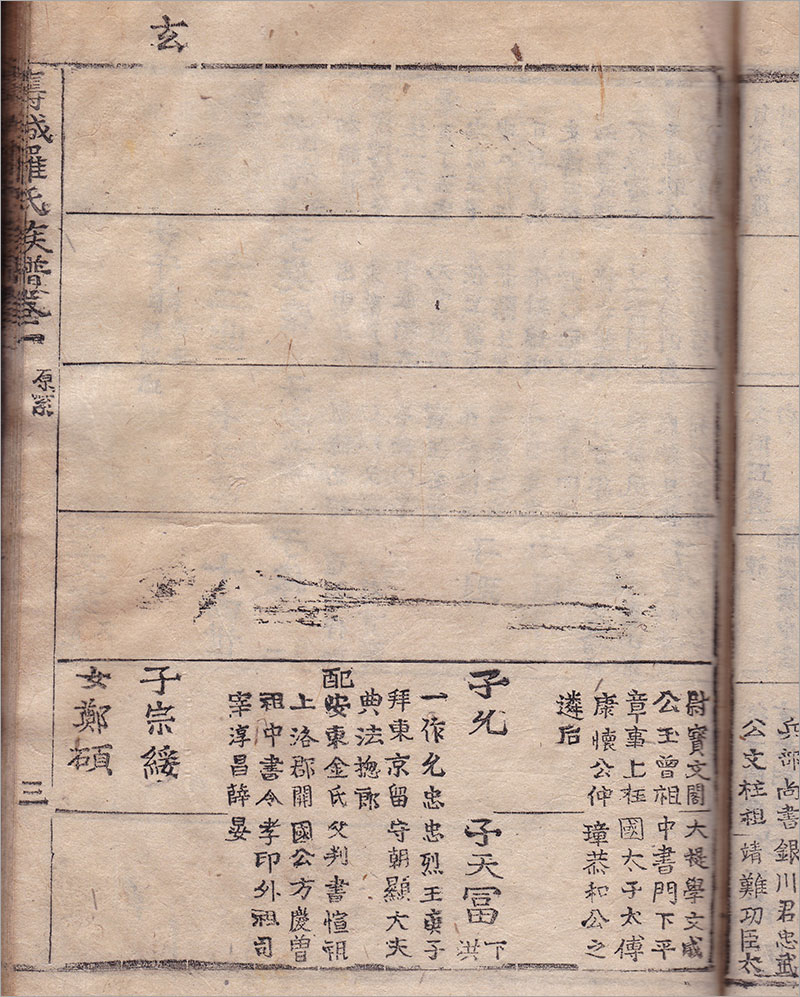 兵部尚書銀川君忠武
公文柱祖靖難功臣太
尉寶文閣大提學文成
公玉曾祖中書門下平
章事上柱國太子太傅
康懷公仲璋恭和公之
遴后
子允
子天冨
下
洪
一作允忠忠烈王庚子
拜東京留守朝顯大夫
典法摠郎
配安東金氏父判書愃祖
上洛郡開國公方慶曾
祖中書令孝印外祖司
宰淳昌薛晏
子宗緩
女鄭碩
玄
壽城羅氏族譜卷一
原系
三